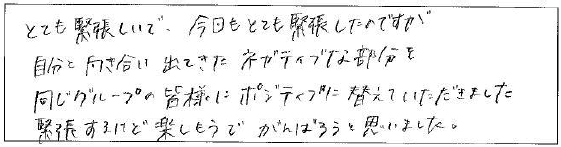 とても緊張しいで、今回もとても緊張したのですが
自分と向き合い出てきたネガティブな部分を
同じグループの皆様にポジティブに替えていただきました
緊張するけど楽しもうでがんばろうと思いました。